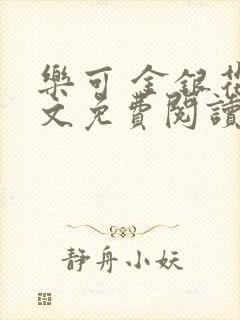 樂可 金銀花
文免費閱讀
静舟小妖